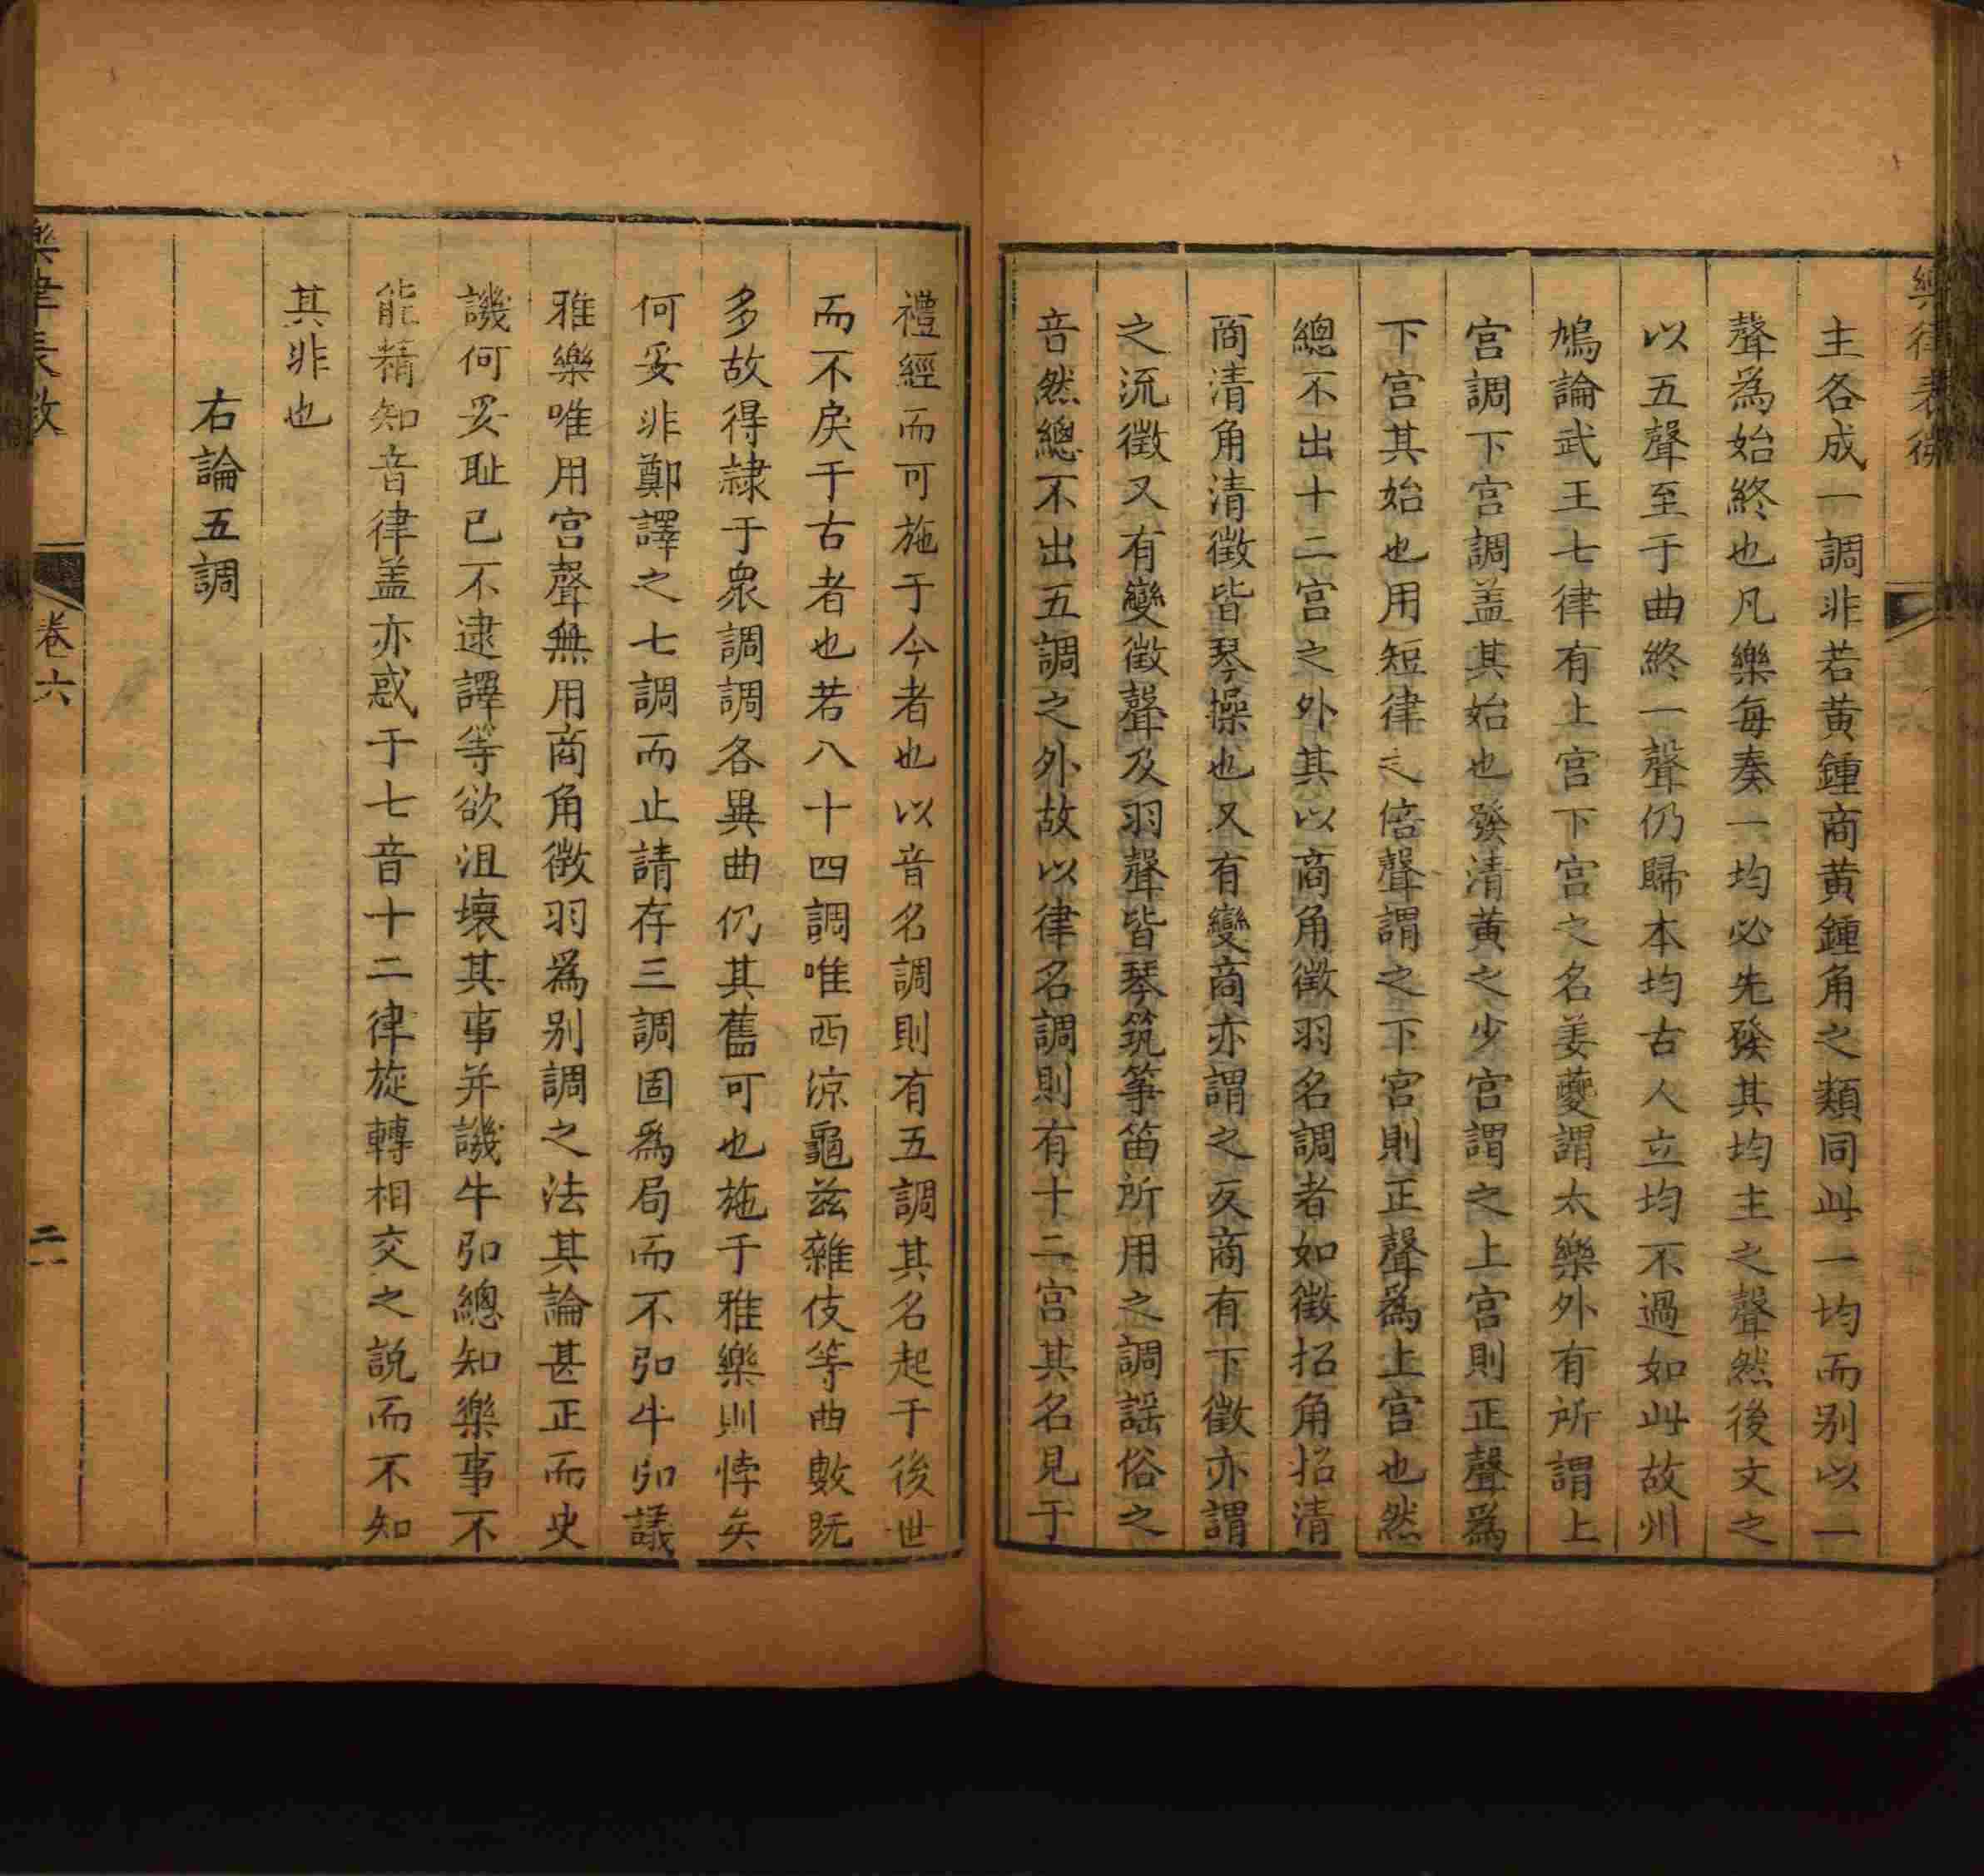 樂律表微
主各成一調非若黄鍾商黄鍾角之類同此一均而别以一
聲爲始終也凡樂每奏一均必先發其均主之聲然後文之
以五聲至于曲終一聲仍歸本均古人立均不過如此故州
鳩論武王七律有上宫下宫之名姜夔謂太樂外有所謂上
宫調下宫調盖其始也發清黄之少宫謂之上宫則正聲爲
下宫其始也用短律之倍聲謂之下宫則正聲爲上宫也然
總不出十二宫之外其以商角徵羽名調者如徵招角招清
商清角清徵皆琴操也又有變商亦謂之反商有下徵亦謂
之流徵又有變徵聲及羽聲皆琴筑筝笛所用之調謡俗之
音然總不出五調之外故以律名調則有十二宫其名見于
禮經而可施于今者也以音名調則有五調其名起于後世
而不戾于古者也若八十四調唯西凉龜兹雜伎等曲數既
多故得隷于衆調調各異曲仍其舊可也施于雅樂則悖矣
何妥非鄭譯之七調而止請存三調固爲局而不弘牛弘議
雅樂唯用宫聲無用商角徵羽爲别調之法其論甚正而史
譏何妥耻已不逮譯等欲沮壞其事并譏牛弘總知樂事不
能精知音律盖亦惑于七音十二律旋轉相交之説而不知
其非也
右論五調
樂律表微
卷六
二